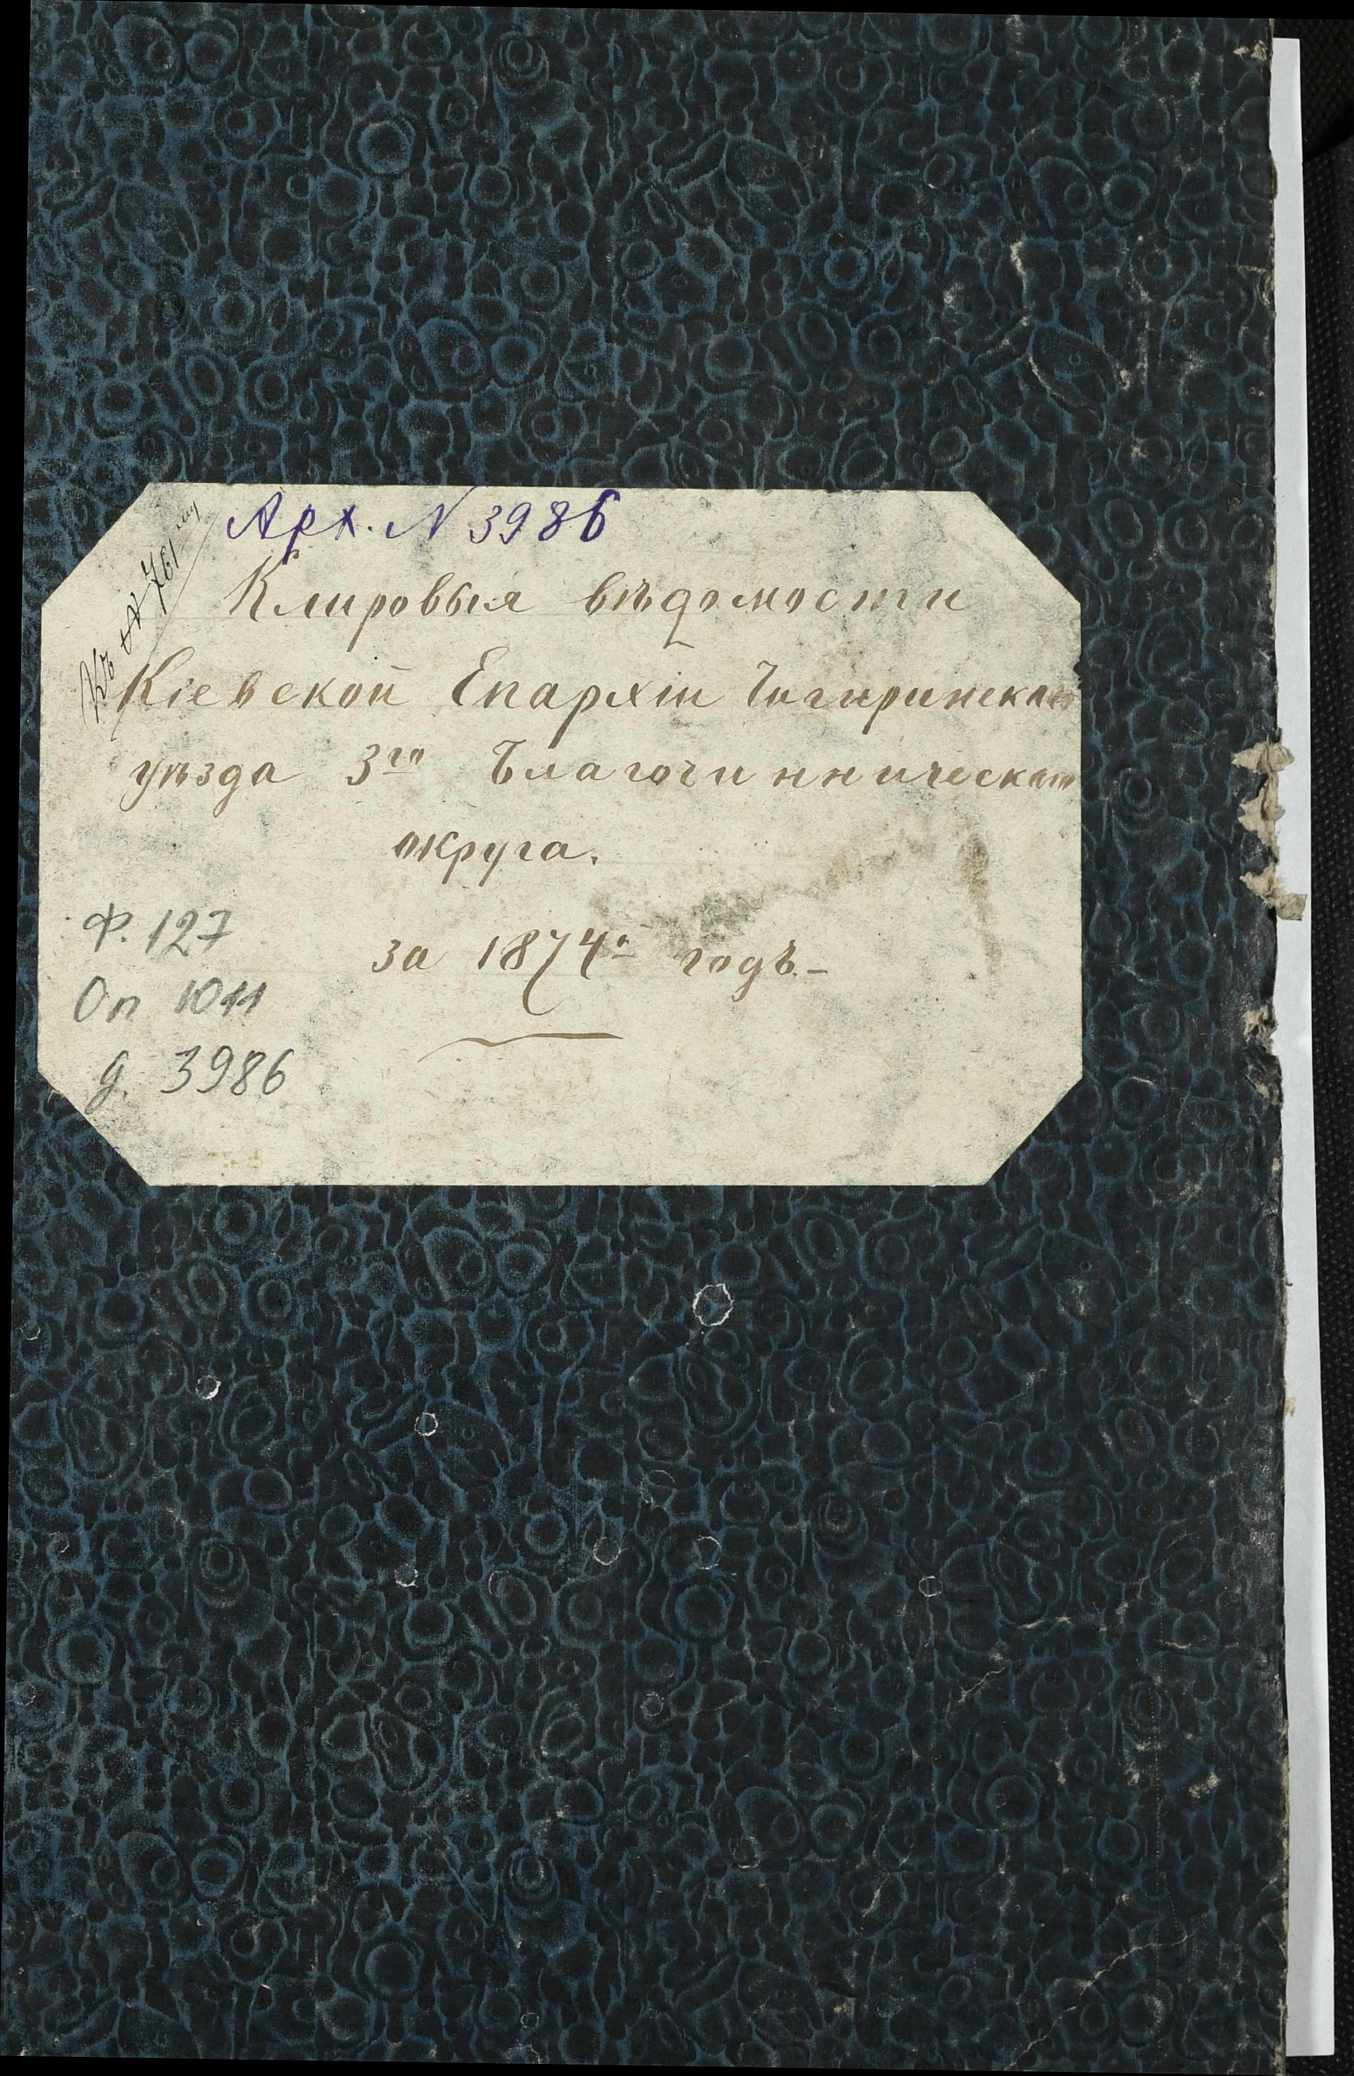 Арх. N 3986
Къ N 761
Клировыя вѣдомости
Кіевской Епархіи Чигиринскаго
уѣзда 3го Благочинническаго
округа.
за 1874й годъ.-
Ф. 127
Оп 1011
д. 3986